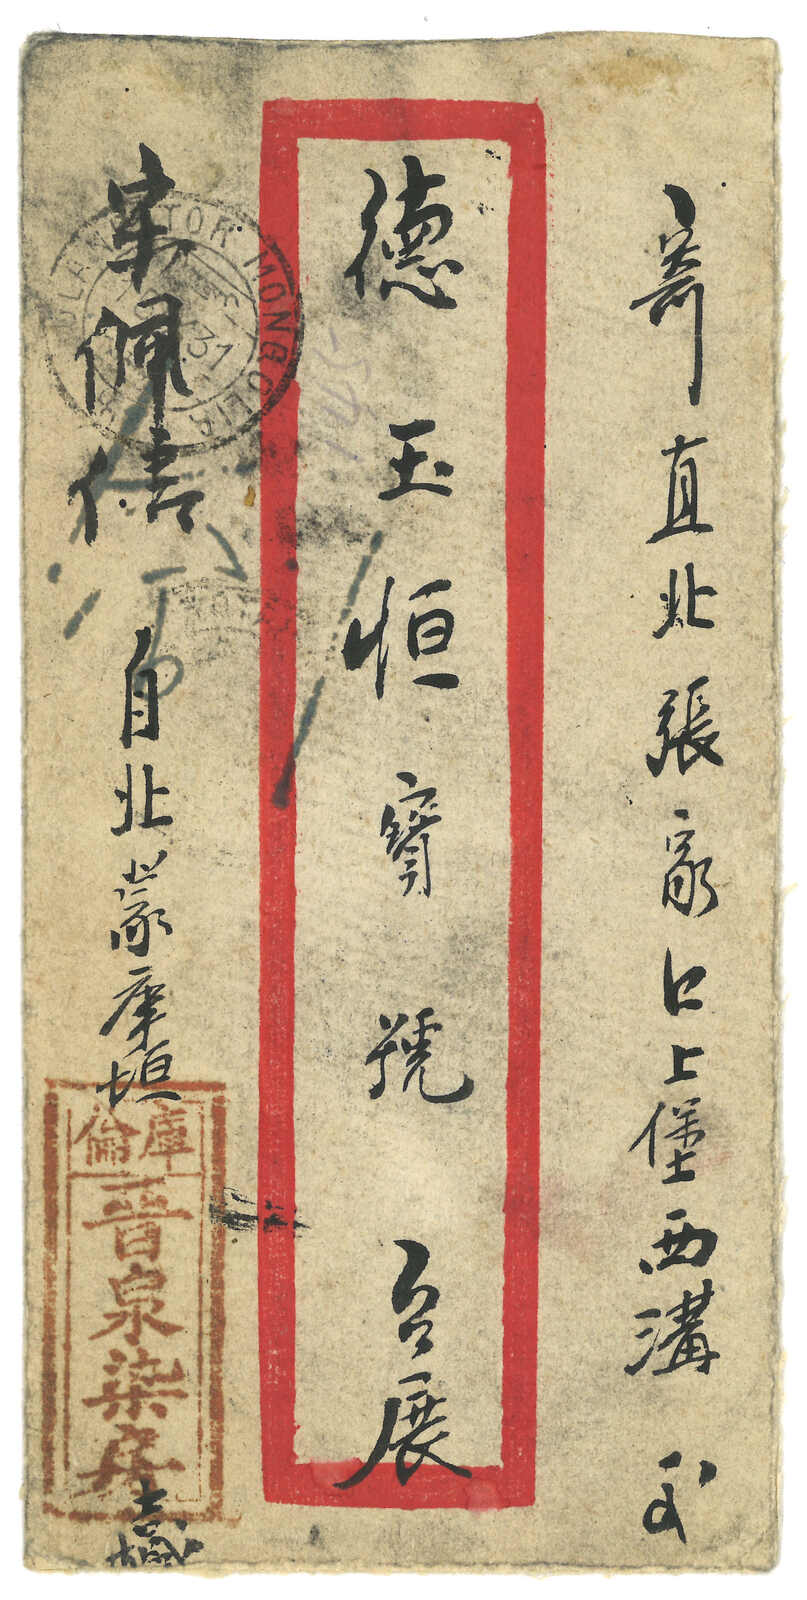 寄直北張家口上堡西溝 玉
德玉恒寶號 台展
佩信 自北蒙庫垣
庫倫
晉泉染房
緘
ULAN BATOR MONGOLIA
37